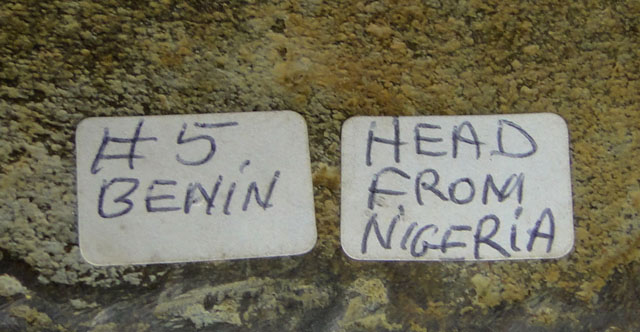 # 5
BENIN
HEAD
FROM
NIGERIA